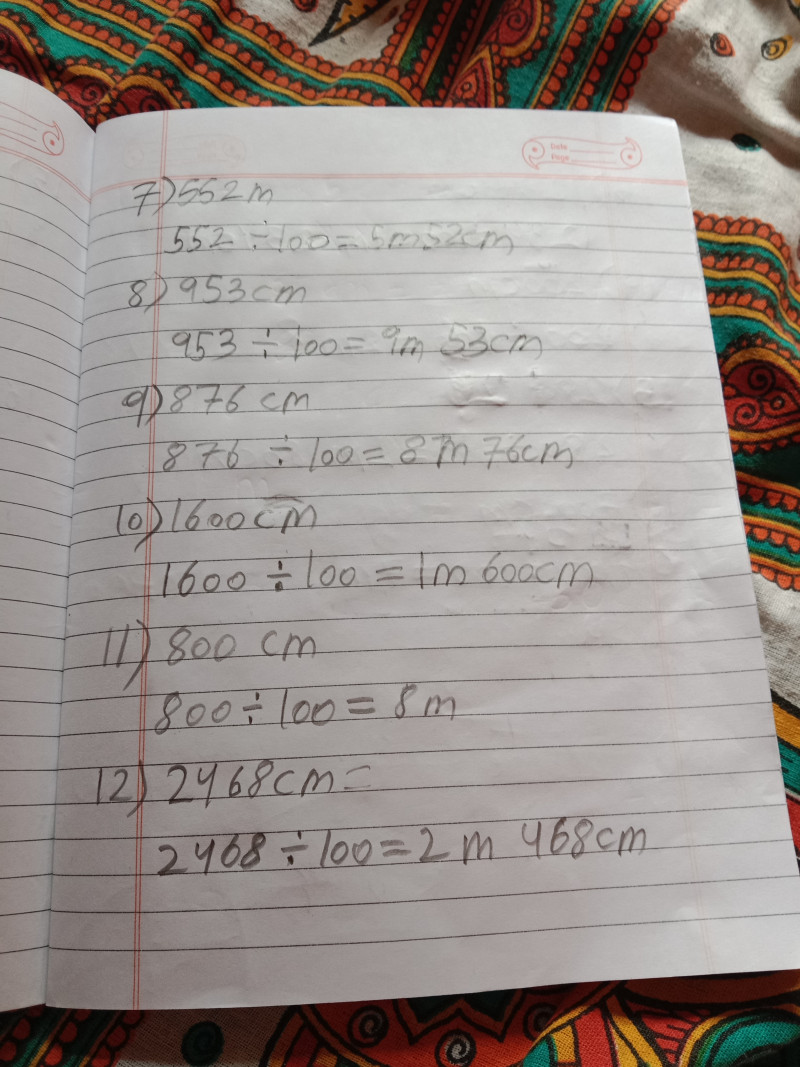 Date
Page
7) 552m
552 ÷ 100 = 5m 52cm
8) 953cm
953 ÷ 100 = 9m 53cm
9) 876 cm
876 ÷ 100 = 8m 76cm
10) 1600cm
1600 ÷ 100 = 1m 600cm
11) 800 cm
800 ÷ 100 = 8m
12) 2468cm =
2468 ÷ 100 = 2m 468cm